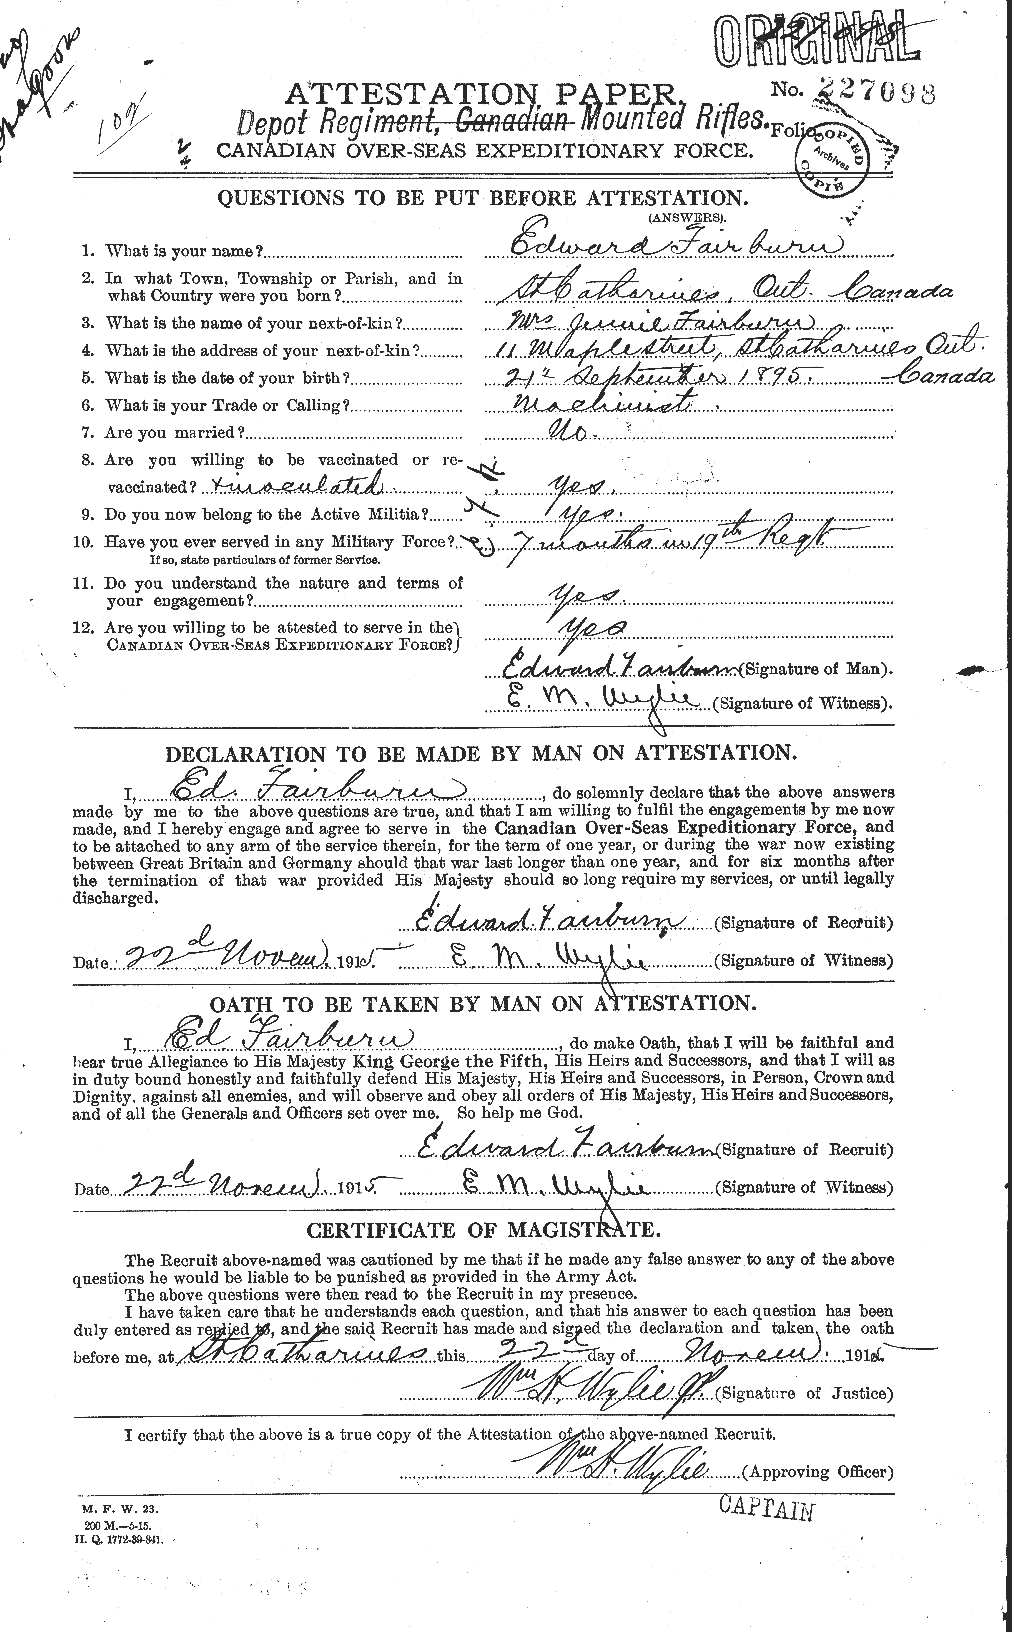 ORIGINAL
ATTESTATION PAPER.
No. 227098
Depot Regiment, Canadian Mounted Rifles.
Folio
CANADIAN OVER-SEAS EXPEDITIONARY FORCE.
COPIED
Archives
COPIÉ
109
QUESTIONS TO BE PUT BEFORE ATTESTATION.
(ANSWERS).
1. What is your name? Edward Fairburn
2. In what Town, Township or Parish, and in
what Country were you born? St Catharines, Ont. Canada
3. What is the name of your next-of-kin? Mrs Jennie Fairburn
4. What is the address of your next-of-kin? 11 Maple street, St Catharines Ont.
Canada
5. What is the date of your birth? 21st September 1895.
6. What is your Trade or Calling? Machinist.
7. Are you married? No.
8. Are you willing to be vaccinated or re-
vaccinated? + inoculated Yes.
9. Do you now belong to the Active Militia? Yes.
10. Have you ever served in any Military Force? 7 months in 19th Regt
If so, state particulars of former Service.
11. Do you understand the nature and terms of
your engagement? Yes.
12. Are you willing to be attested to serve in the
CANADIAN OVER-SEAS EXPEDITIONARY FORCE? Yes
Edward Fairburn (Signature of Man).
E. M. Wylie (Signature of Witness).
DECLARATION TO BE MADE BY MAN ON ATTESTATION.
I, Ed. Fairburn, do solemnly declare that the above answers
made by me to the above questions are true, and that I am willing to fulfil the engagements by me now
made, and I hereby engage and agree to serve in the Canadian Over-Seas Expeditionary Force, and
to be attached to any arm of the service therein, for the term of one year, or during the war now existing
between Great Britain and Germany should that war last longer than one year, and for six months after
the termination of that war provided His Majesty should so long require my services, or until legally
discharged.
Edward Fairburn (Signature of Recruit)
Date 22d Novem. 1915 E. M. Wylie (Signature of Witness)
OATH TO BE TAKEN BY MAN ON ATTESTATION.
I, Ed Fairburn, do make Oath, that I will be faithful and
bear true Allegiance to His Majesty King George the Fifth, His Heirs and Successors, and that I will as
in duty bound honestly and faithfully defend His Majesty, His Heirs and Successors, in Person, Crown and
Dignity, against all enemies, and will observe and obey all orders of His Majesty, His Heirs and Successors,
and of all the Generals and Officers set over me. So help me God.
Edward Fairburn (Signature of Recruit)
Date 22d Novem. 1915 E. M. Wylie (Signature of Witness)
CERTIFICATE OF MAGISTRATE.
The Recruit above-named was cautioned by me that if he made any false answer to any of the above
questions he would be liable to be punished as provided in the Army Act.
The above questions were then read to the Recruit in my presence.
I have taken care that he understands each question, and that his answer to each question has been
duly entered as replied to, and the said Recruit has made and signed the declaration and taken the oath
before me, at St Catharines this 22d day of Novem. 1915
Wm H. Wylie JP. (Signature of Justice)
I certify that the above is a true copy of the Attestation of the above-named Recruit.
Wm H. Wylie (Approving Officer)
CAPTAIN
M. F. W. 23.
200 M.—5-15.
H. Q. 1772-39-841.